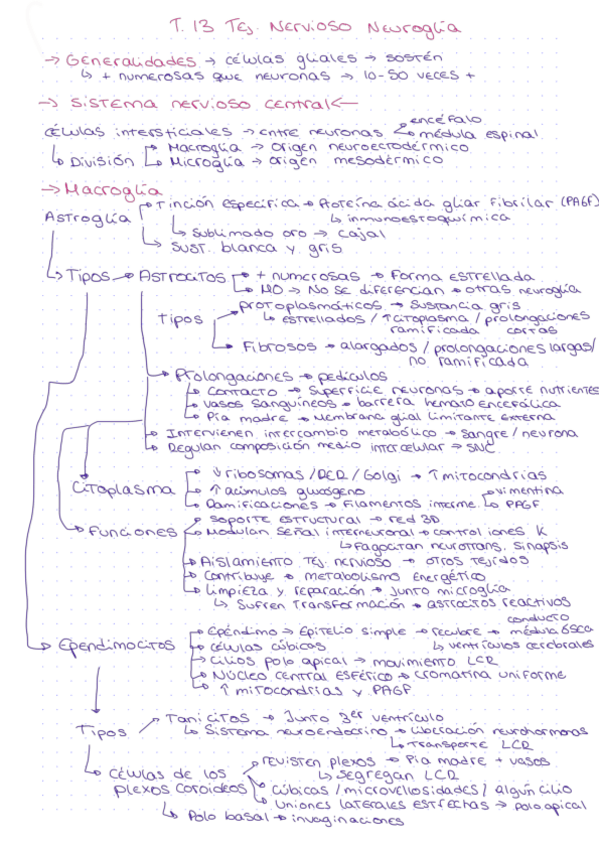 T. 13 Tej. Nervioso Neuroglía
→ Generalidades → células gliales → sostén
↳ + numerosas que neuronas → 10-50 veces +
→ Sistema nervioso central ←
Células intersticiales → entre neuronas encéfalo
médula espinal
↳ División Macroglía → origen neuroectodérmico
Microglía → origen mesodérmico
→ Macroglía
Astroglía Tinción específica → Proteína ácida gliar fibrilar (PAGF)
↳ inmunoestoquímica
↳ Sublimado oro → Cajal
↳ Sust. blanca y gris
↳ Tipos → Astrocitos + numerosas → Forma estrellada
MO → No se diferencian → otras neuroglía
Tipos protoplasmáticos → Sustancia gris
↳ estrellados / ↑citoplasma / prolongaciones
ramificada cortas
Fibrosos → alargados / prolongaciones largas /
no ramificada
Prolongaciones → pedículos
Contacto → Superficie neuronas → aporte nutrientes
Vasos sanguíneos → barrera hemato encefálica
Pia madre → Membrana glial limitante externa
Intervienen intercambio metabólico → sangre / neurona
Regulan composición medio intercelular → SNC
Citoplasma ↓ ribosomas / RER / Golgi → ↑ mitocondrias
↑ acúmulos glucógeno
Ramificaciones → Filamentos interme. vimentina
PAGF
Funciones Soporte estructural → red 3D
Modulan señal interneuronal → control iones K
↳ Fagocitan neurotrans. sinapsis
Aislamiento Tej. nervioso → otros tejidos
Contribuye → metabolismo energético
Limpieza y reparación → Junto microglía
↳ Sufren transformación → astrocitos reactivos
Ependimocitos Epéndimo → Epitelio simple → recubre conducto
médula ósea
↳ ventrículos cerebrales
Células cúbicas
Cilios polo apical → movimiento LCR
Núcleo central esférico → cromatina uniforme
↑ mitocondrias y PAGF
Tipos Tanicitos → Junto 3er ventrículo
↳ Sistema neuroendocrino → liberación neurohormonas
↳ Transporte LCR
Células de los plexos coroideos revisten plexos → Pia madre + vasos
↳ Segregan LCR
Cúbicas / microvellosidades / algún cilio
Uniones laterales estrechas → polo apical
↳ Polo basal → invaginaciones